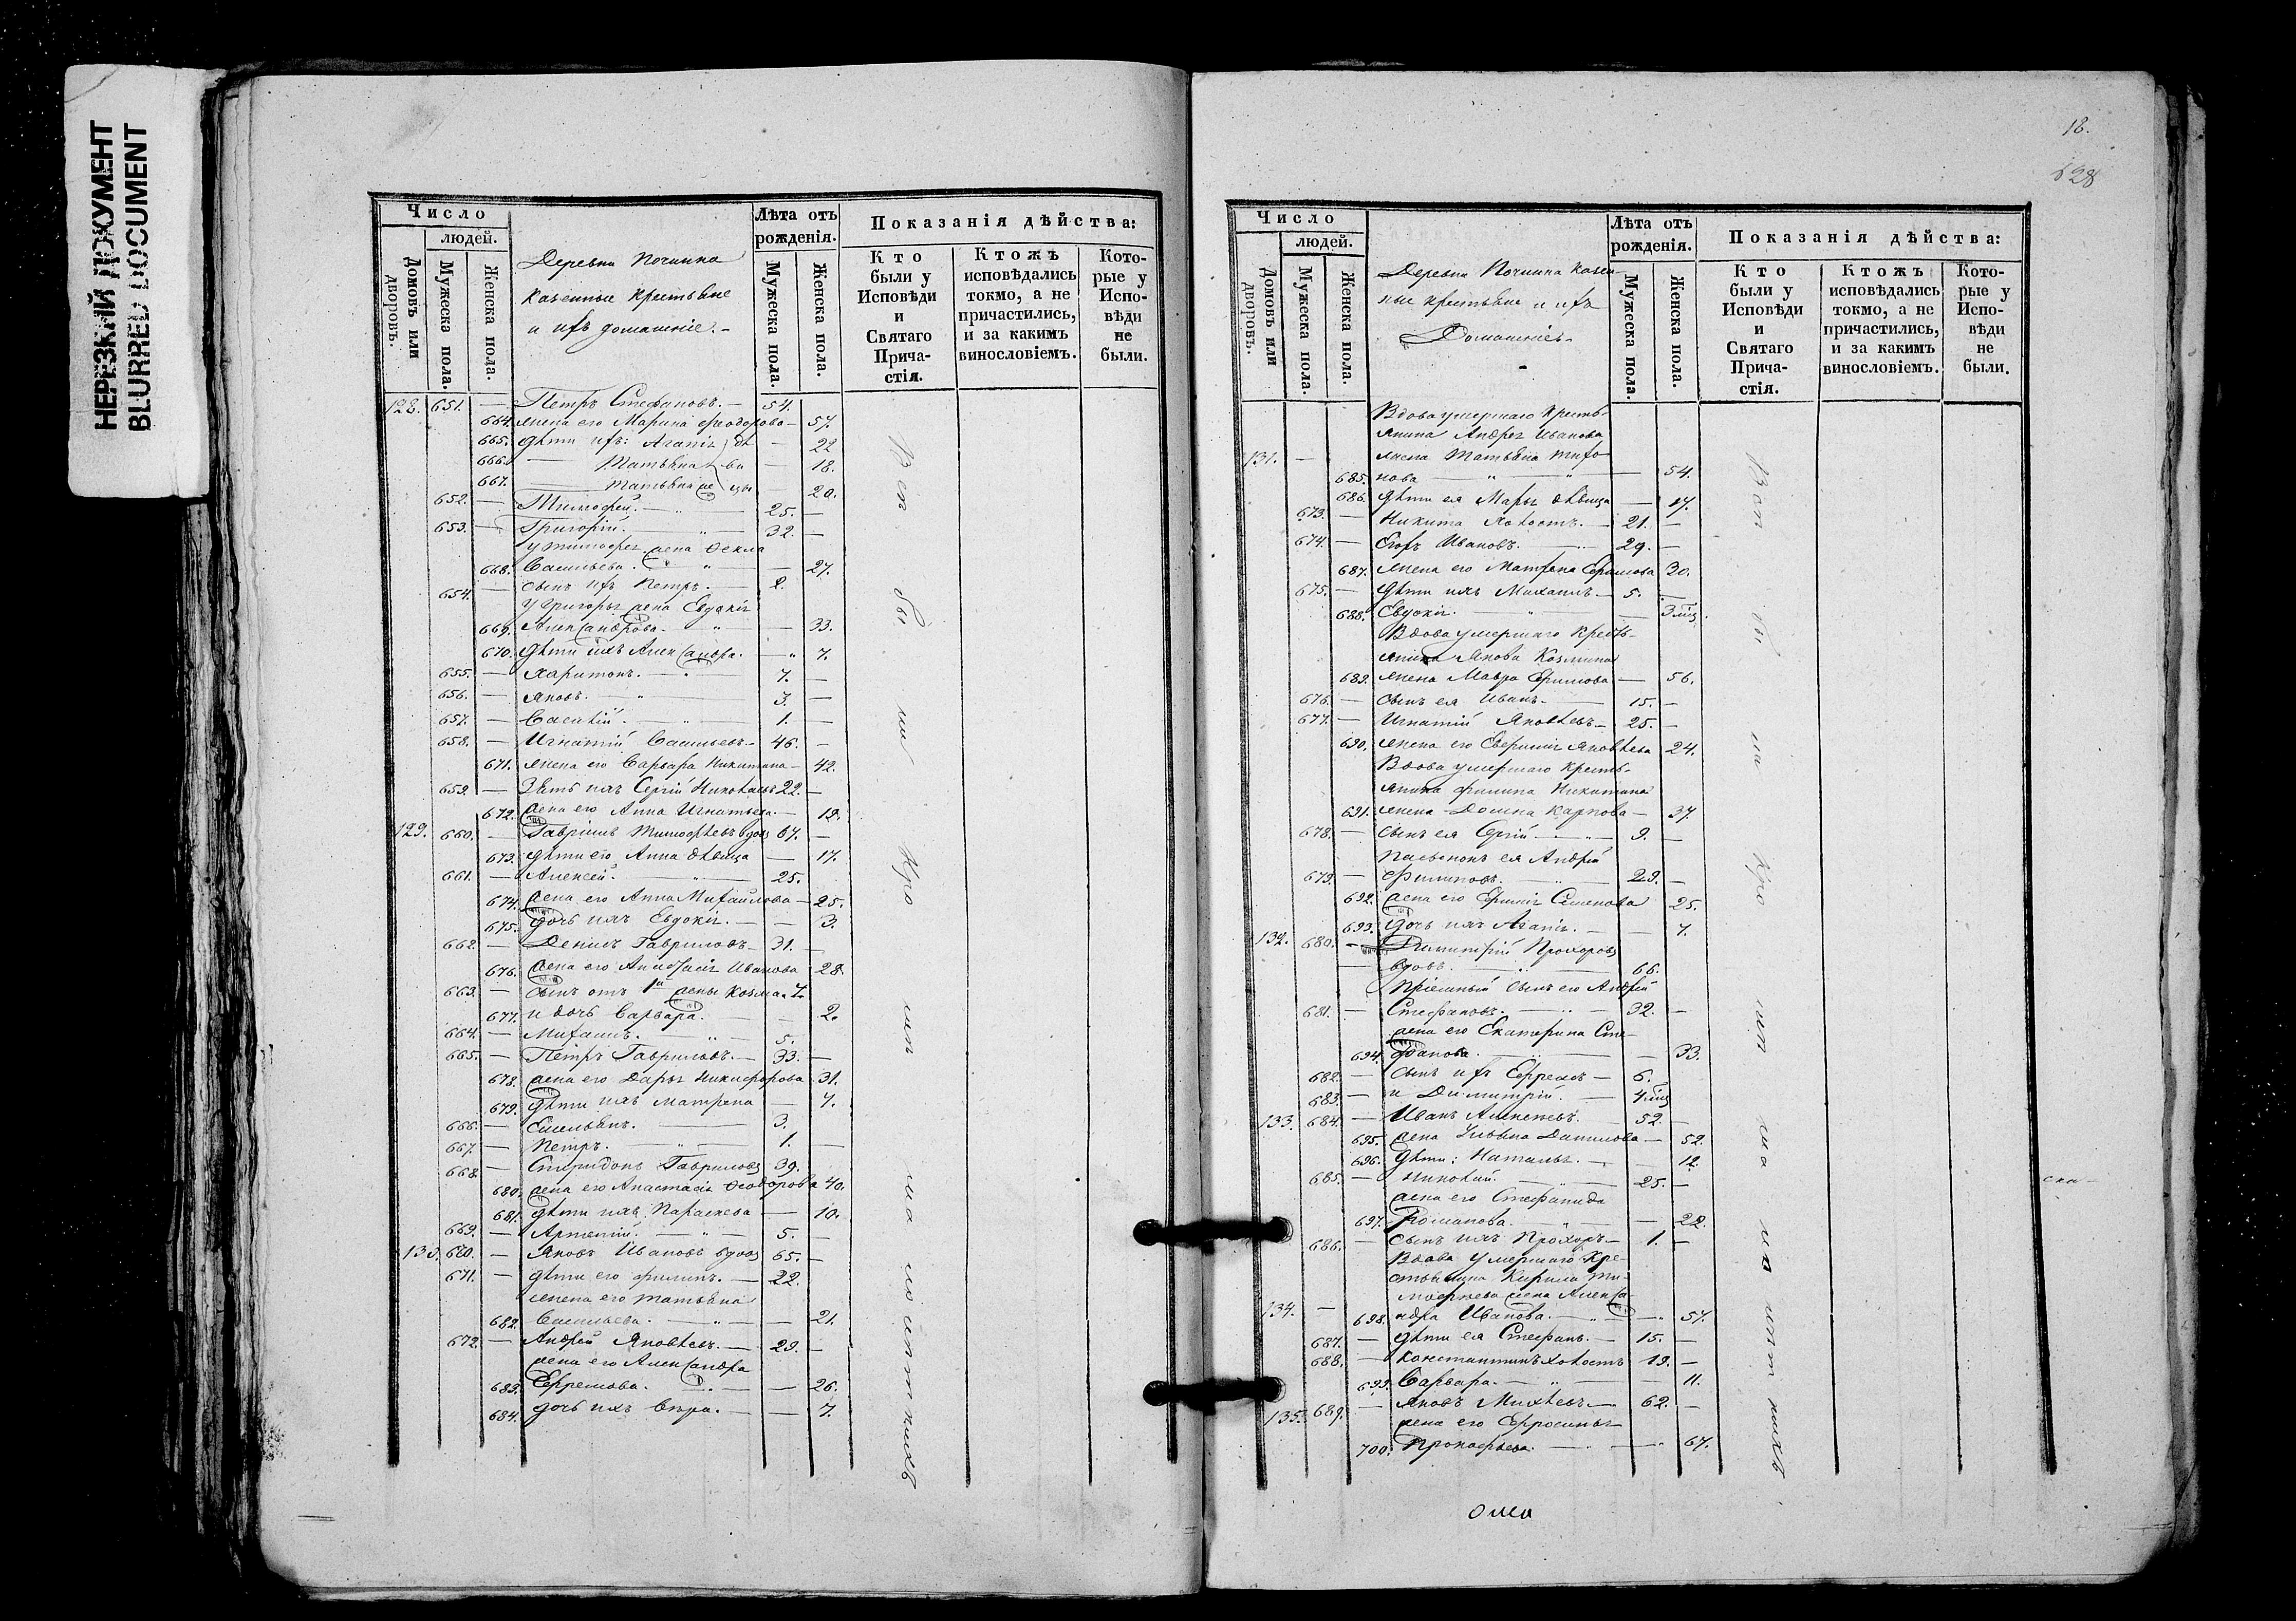 НЕРЕЗКИЙ ДОКУМЕНТ
BLURRED DOCUMENT
Число
людей.
Домовъ или дворовъ.
Мужеска пола.
Женска пола.
Деревни Починка
казенные крестьяне
и ихъ домашніе.
Лѣта отъ рожденія.
Мужеска пола.
Женска пола.
Показанія дѣйства:
Кто были у Исповѣди и Святаго Причастія.
Ктожъ исповѣдались токмо, а не причастились, и за какимъ винословіемъ.
Которые у Исповѣди не были.
128. 651. — Петръ Стефановъ. — 54.
664. жена его Марина Феодорова — 57.
665. дѣти ихъ: Агапія — 22
666. — Татьяна — 18.
667. — Татьяна — 20.
652. — Тимофей. — 25. —
653. — Григорій. — 32. —
у Тимофея жена Фекла
668. Васильева. — 27.
654. — сынъ ихъ Петръ. — 2.
у Григорья жена Евдокія
669. Александрова. — 33.
670. дѣти ихъ Александра. — 7.
655. — Харитонъ. — 7. —
656. — Яковъ. — 3. —
657. — Василій. — 1. —
658. — Игнатій Васильевъ. — 46. —
671. жена его Варвара Никитина — 42.
659. — Зять ихъ Сергій Николаевъ 22. —
672. жена его Анна Игнатьева. — 19.
129. 660. — Гавріилъ Тимофѣевъ вдовъ 67. —
673. дѣти его Анна дѣвица — 17.
661. — Алексей. — 25.
674. жена его Анна Михайлова — 25.
675. дочь ихъ Евдокія. — 3.
662. — Денисъ Гавриловъ — 31. —
676. жена его Анастасія Иванова 28.
663. — сынъ отъ 1й жены Козма. 7.
677. и дочь Варвара. — 2.
664. — Михаилъ. — 5.
665. — Петръ Гавриловъ. — 33. —
678. жена его Дарья Никифорова 31.
679. дѣти ихъ Матрена — 7.
666. — Емельянъ. — 3.
667. — Петръ. — 1. —
668. — Спиридонъ Гавриловъ 39.
680. жена его Анастасія Феодорова 40.
681. дѣти ихъ Параскева — 10.
669. — Артемій. — 5. —
130. 670. — Яковъ Ивановъ вдовъ 65. —
671. — дѣти его Филипъ. — 22.
жена его Татьяна
682. Васильева. — 21.
672. — Андрей Яковлевъ. — 29. —
жена его Александра
683. Ефремова. — 26.
684. дочь ихъ Вѣра. — 7.
18.
628
Число
людей.
Домовъ или дворовъ.
Мужеска пола.
Женска пола.
Деревни Починка казен-
ные крестьяне и ихъ
Домашніе.
Лѣта отъ рожденія.
Мужеска пола.
Женска пола.
Показанія дѣйства:
Кто были у Исповѣди и Святаго Причастія.
Ктожъ исповѣдались токмо, а не причастились, и за какимъ винословіемъ.
Которые у Исповѣди не были.
Вдова умершаго кресть-
янина Андрея Иванова
131. — жена Татьяна Тихо-
685. нова — 54.
686. дѣти ея Марья дѣвица — 17.
673. — Никита холостъ. — 21. —
674. — Егоръ Ивановъ. — 29. —
687. жена его Матрена Ефимова 30.
675. — дѣти ихъ Михаилъ — 5. —
688. Евдокія. — 3 мѣц.
Вдова умершаго кресть-
янина Якова Козмина
689. жена Мавра Ефимова — 56.
676. — сынъ ея Иванъ. — 15. —
677. — Игнатій Яковлевъ — 25. —
690. жена его Евфимія Яковлева 24.
Вдова умершаго кресть-
янина Филипа Никитина
691. жена Домна Карпова — 37
678. — сынъ ея Сергій — 9. —
пасынокъ ея Андрей
679. — Филиповъ. — 29. —
692. жена его Ефимія Семенова 25.
693. дочь ихъ Агапія. — 7.
132. 680. — Димитрій Прохоровъ
вдовъ. — 66.
Пріемный сынъ его Андрей
681. — Стефановъ. — 32. —
жена его Екатерина Сте-
694. фанова. — 33.
682. — сынъ ихъ Ефремъ — 6.
683. — и Димитрій. — 4 мѣц
133. 684. — Иванъ Алексеевъ. 52. —
695. жена Ульяна Данилова — 52.
696. дѣти: Наталья. — 12.
685. — Николай. — 25. —
жена его Стефанида
697. Романова. — 22.
686. — сынъ ихъ Прохоръ — 1. —
Вдова умершаго кре-
стьянина Кирила Ти-
мофеева жена Алекса-
134. — 698. ндра Иванова. — 57.
687. — дѣти ея Стефанъ. — 15. —
688. — Константинъ холостъ 19. —
699. Варвара. — 11.
135. 689. — Яковъ Михеевъ — 62. —
жена его Ефросинья
700. Прокофьева. — 67.